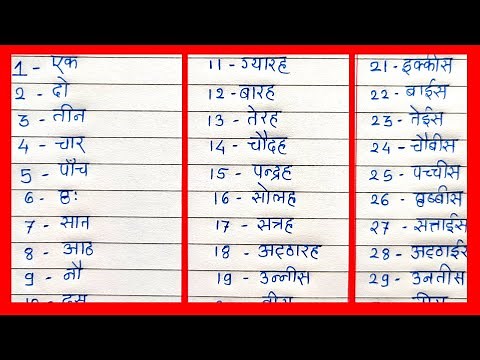 1 - एक
2 - दो
3 - तीन
4 - चार
5 - पाँच
6 - छः
7 - सात
8 - आठ
9 - नौ
10 - दस
11 - ग्यारह
12 - बारह
13 - तेरह
14 - चौदह
15 - पन्द्रह
16 - सोलह
17 - सत्रह
18 - अट्ठारह
19 - उन्नीस
21 - इक्कीस
22 - बाईस
23 - तेईस
24 - चौबीस
25 - पच्चीस
26 - छब्बीस
27 - सत्ताईस
28 - अट्ठाईस
29 - उनतीस